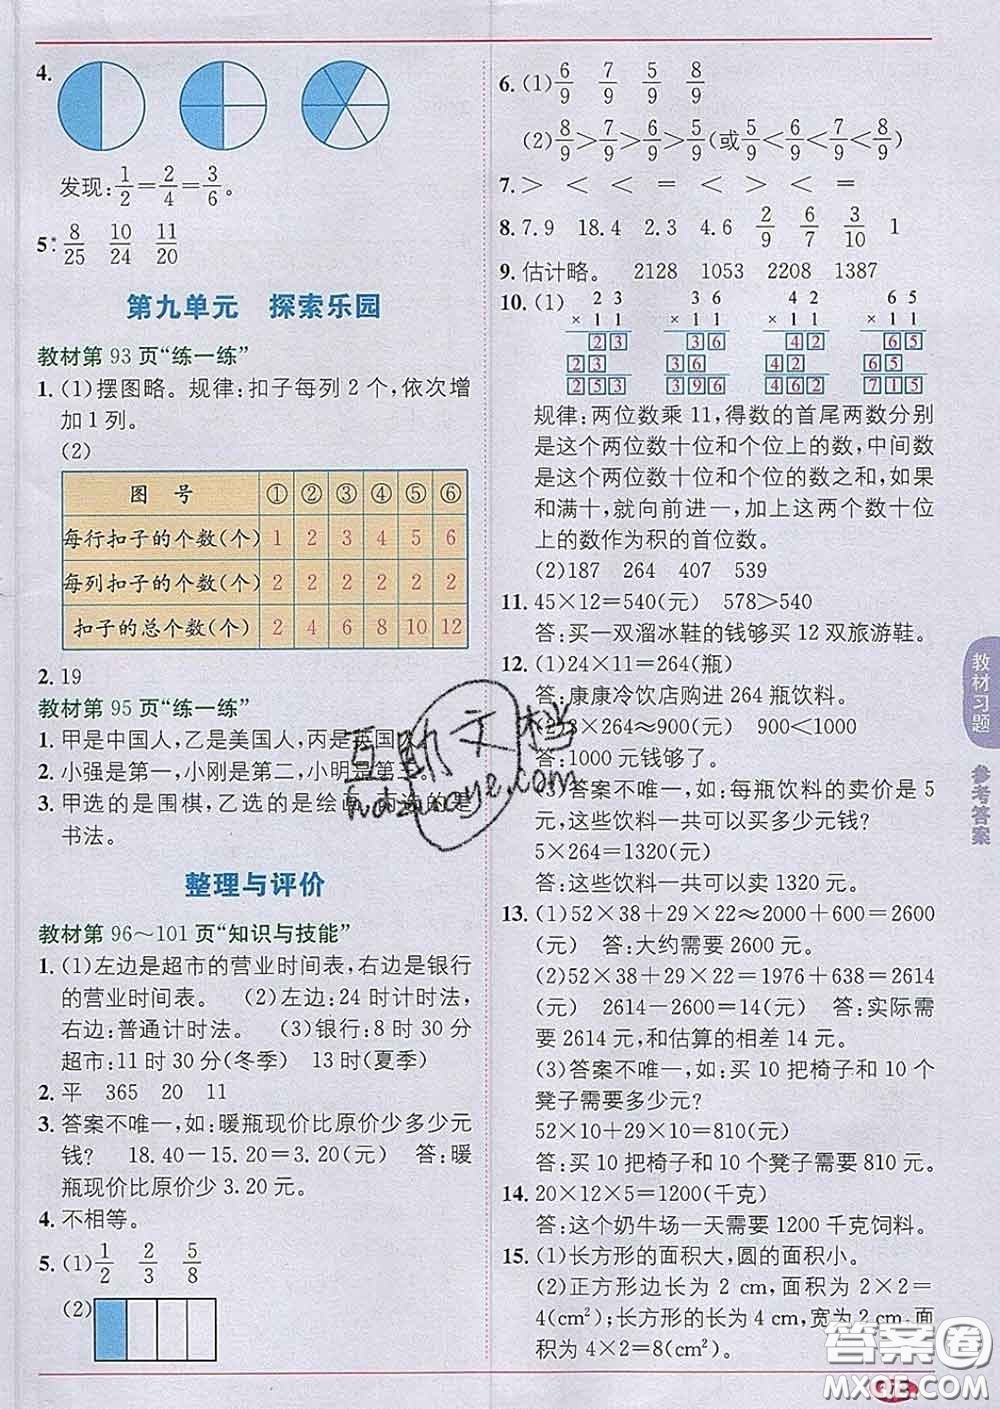 4.
发现:1/2=2/4=3/6。
5. 8/25 10/24 11/20
第九单元 探索乐园
教材第 93 页“练一练”
1. (1)摆图略。规律:扣子每列 2 个,依次增
加 1 列。
(2)
图 号 ① ② ③ ④ ⑤ ⑥
每行扣子的个数(个) 1 2 3 4 5 6
每列扣子的个数(个) 2 2 2 2 2 2
扣子的总个数(个) 2 4 6 8 10 12
2. 19
教材第 95 页“练一练”
1. 甲是中国人,乙是美国人,丙是英国人。
2. 小强是第一,小刚是第二,小明是第三。
3. 甲选的是围棋,乙选的是绘画,丙选的是
书法。
整理与评价
教材第 96～101 页“知识与技能”
1. (1)左边是超市的营业时间表,右边是银行
的营业时间表。 (2)左边:24 时计时法,
右边:普通计时法。 (3)银行:8 时 30 分
超市:11 时 30 分(冬季) 13 时(夏季)
2. 平 365 20 11
3. 答案不唯一,如:暖瓶现价比原价少多少元
钱? 18.40-15.20=3.20(元) 答:暖
瓶现价比原价少 3.20 元。
4. 不相等。
5. (1) 1/2 2/3 5/8
(2)
6. (1) 6/9 7/9 5/9 8/9
(2) 8/9>7/9>6/9>5/9(或5/9<6/9<7/9<8/9)
7. > < < = < < < =
8. 7.9 18.4 2.3 4.6 2/9 6/7 3/10 1
9. 估计略。 2128 1053 2208 1387
10. (1) 2 3 3 6 4 2 6 5
×1 1 ×1 1 ×1 1 ×1 1
2 3 3 6 4 2 6 5
2 3 3 6 4 2 6 5
2 5 3 3 9 6 4 6 2 7 1 5
规律:两位数乘 11,得数的首尾两数分别
是这个两位数十位和个位上的数,中间数
是这个两位数十位和个位的数之和,如果
和满十,就向前进一,加上这两个数十位
上的数作为积的首位数。
(2)187 264 407 539
11. 45×12=540(元) 578>540
答:买一双溜冰鞋的钱够买 12 双旅游鞋。
12. (1)24×11=264(瓶)
答:康康冷饮店购进 264 瓶饮料。
3×264≈900(元) 900<1000
答:1000 元钱够了。
(3)答案不唯一,如:每瓶饮料的卖价是 5
元,这些饮料一共可以买多少元钱?
5×264=1320(元)
答:这些饮料一共可以卖 1320 元。
13. (1)52×38+29×22≈2000+600=2600
(元) 答:大约需要 2600 元。
(2)52×38+29×22=1976+638=2614
(元) 2614-2600=14(元) 答:实际需
要 2614 元,和估算的相差 14 元。
(3)答案不唯一,如:买 10 把椅子和 10 个
凳子需要多少元?
52×10+29×10=810(元)
答:买 10 把椅子和 10 个凳子需要 810 元。
14. 20×12×5=1200(千克)
答:这个奶牛场一天需要 1200 千克饲料。
15. (1)长方形的面积大,圆的面积小。
(2)正方形边长为 2 cm,面积为 2×2=
4(cm²);长方形的长为 4 cm,宽为 2 cm,面
积为 4×2=8(cm²)。
教材习题
参考答案
互助文档
hdzuoye.com
答案圈
MXQE.COM